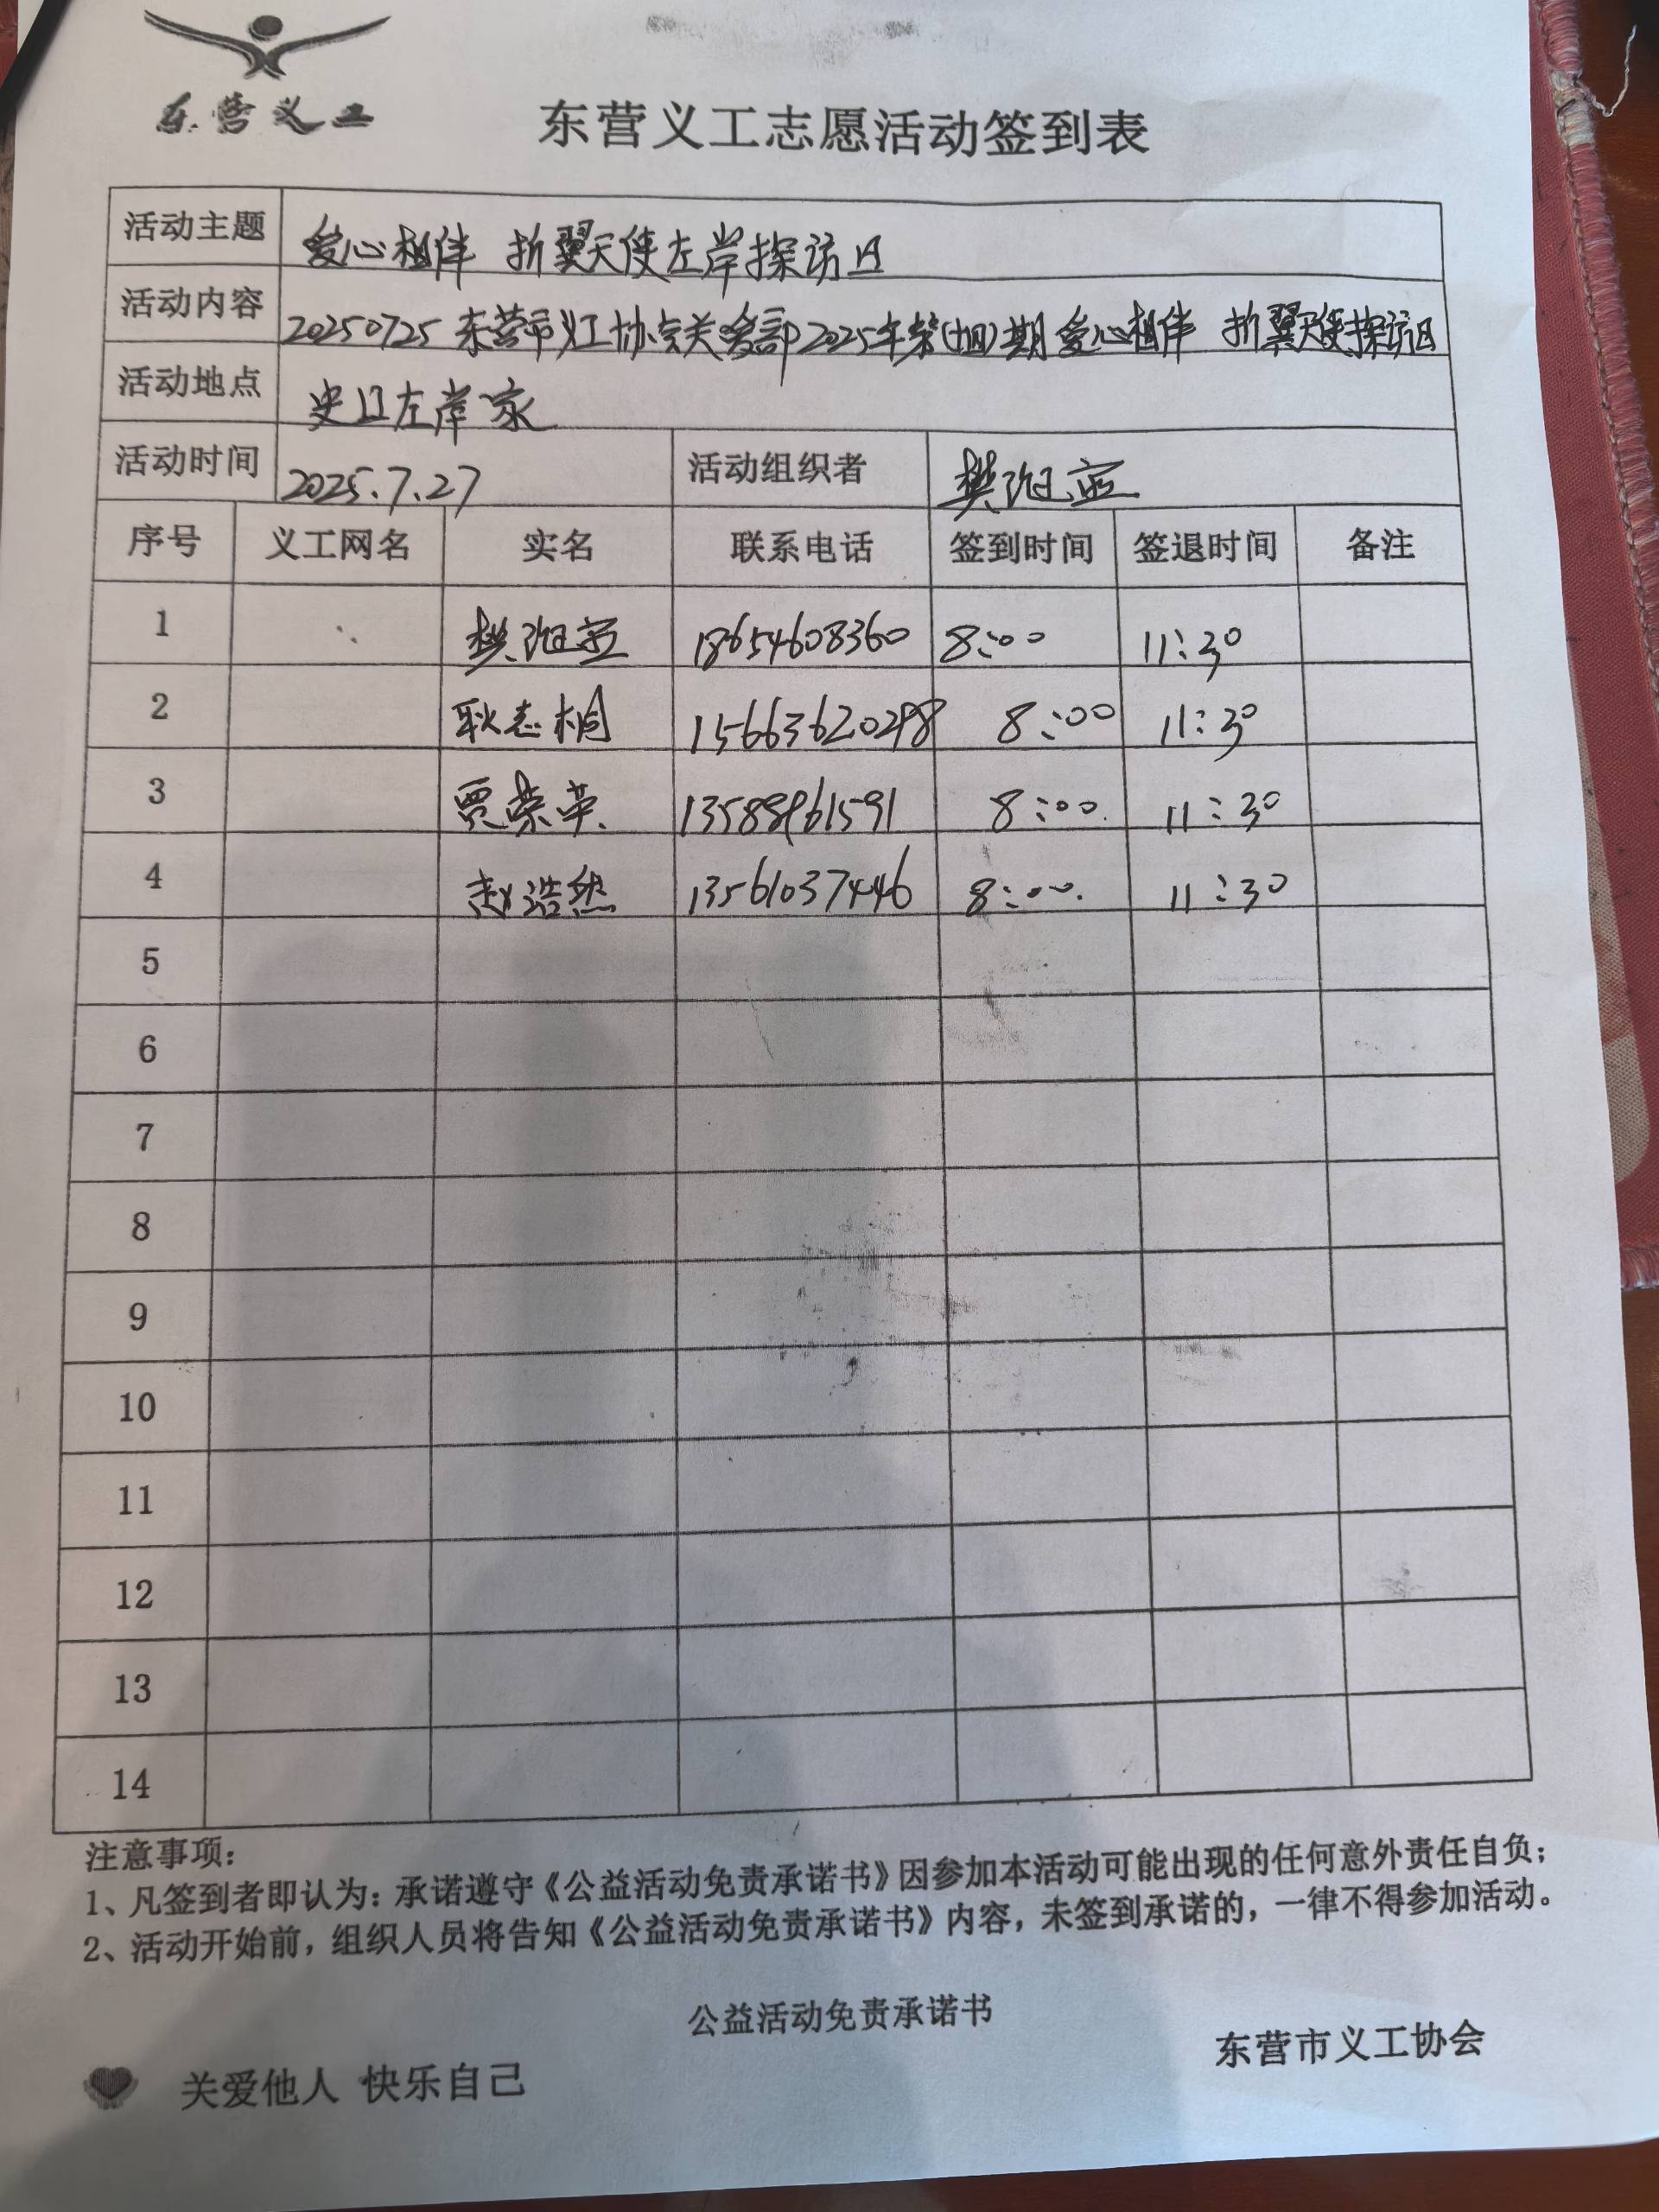 东营义工
东营义工志愿活动签到表
活动主题 爱心相伴 折翼天使左岸探访日
活动内容 20250725东营市义工协会关爱部2025年第(十四)期爱心相伴 折翼天使探访日
活动地点 史口左岸家
活动时间 2025.7.27 活动组织者 樊
序号 义工网名 实名 联系电话 签到时间 签退时间 备注
1 樊 18654608360 8:00 11:30
2 耿志桐 15663620298 8:00 11:30
3 贾荣英 13588961591 8:00 11:30
4 赵浩然 13561037446 8:00 11:30
5
6
7
8
9
10
11
12
13
14
注意事项：
1、凡签到者即认为：承诺遵守《公益活动免责承诺书》因参加本活动可能出现的任何意外责任自负；
2、活动开始前，组织人员将告知《公益活动免责承诺书》内容，未签到承诺的，一律不得参加活动。
公益活动免责承诺书
东营市义工协会
关爱他人 快乐自己